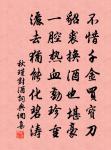 不惜千金買寶刀
貂裘換酒也堪豪
一腔熱血勤珍重
灑去猶能化碧濤
秋瑾對酒詞典網集